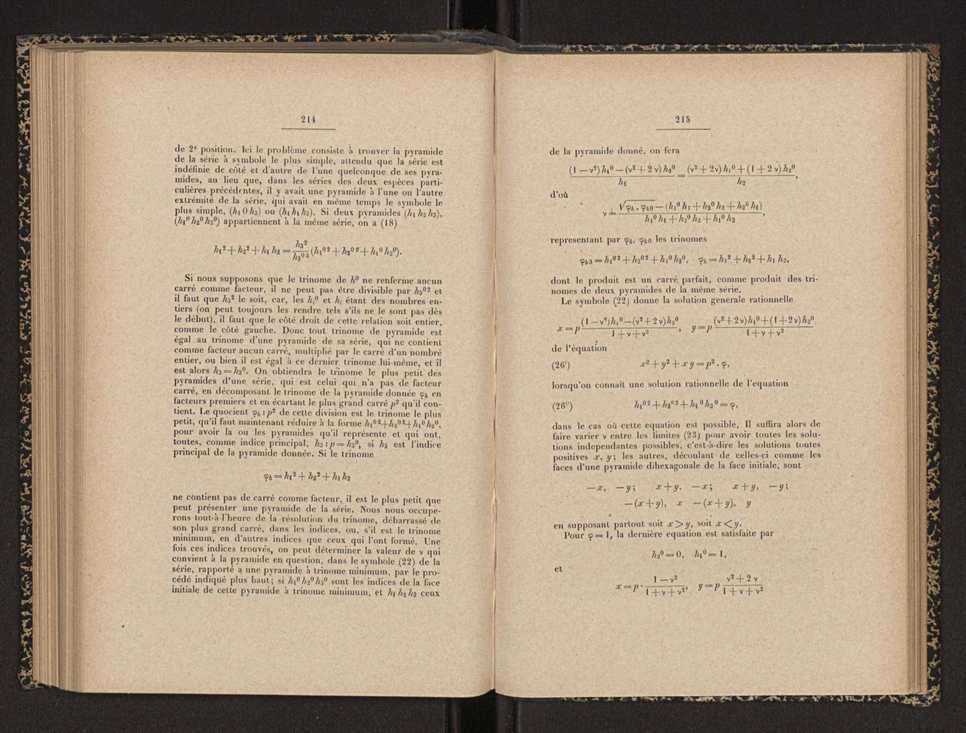 214
de 2ᵉ position. Ici le problème consiste à trouver la pyramide
de la série à symbole le plus simple, attendu que la série est
indéfinie de côté et d'autre de l'une quelconque de ses pyra-
mides, au lieu que, dans les séries des deux espèces parti-
culières précédentes, il y avait une pyramide à l'une ou l'autre
extrémité de la série, qui avait en même temps le symbole le
plus simple, (h₁ 0 h₃) ou (h₁ h₁ h₃). Si deux pyramides (h₁ h₂ h₃),
(h₁⁰ h₂⁰ h₃⁰) appartiennent à la même série, on a (18)
h₁² + h₂² + h₁ h₂ = h₃² / h₃⁰² (h₁⁰² + h₂⁰² + h₁⁰ h₂⁰).
Si nous supposons que le trinome de h⁰ ne renferme aucun
carré comme facteur, il ne peut pas être divisible par h₃⁰² et
il faut que h₃² le soit, car, les hᵢ⁰ et hᵢ étant des nombres en-
tiers (on peut toujours les rendre tels s'ils ne le sont pas dès
le début), il faut que le côté droit de cette relation soit entier,
comme le côté gauche. Donc tout trinome de pyramide est
égal au trinome d'une pyramide de sa série, qui ne contient
comme facteur aucun carré, multiplié par le carré d'un nombre
entier, ou bien il est égal à ce dernier trinome lui-même, et il
est alors h₃ = h₃⁰. On obtiendra le trinome le plus petit des
pyramides d'une série, qui est celui qui n'a pas de facteur
carré, en décomposant le trinome de la pyramide donnée φₕ en
facteurs premiers et en écartant le plus grand carré p² qu'il con-
tient. Le quocient φₕ : p² de cette division est le trinome le plus
petit, qu'il faut maintenant réduire à la forme h₁⁰² + h₂⁰² + h₁⁰ h₂⁰,
pour avoir la ou les pyramides qu'il représente et qui ont,
toutes, comme indice principal, h₃ : p = h₃⁰, si h₃ est l'indice
principal de la pyramide donnée. Si le trinome
φₕ = h₁² + h₂² + h₁ h₂
ne contient pas de carré comme facteur, il est le plus petit que
peut présenter une pyramide de la série. Nous nous occupe-
rons tout-à-l'heure de la résolution du trinome, débarrassé de
son plus grand carré, dans les indices, ou, s'il est le trinome
minimum, en d'autres indices que ceux qui l'ont formé. Une
fois ces indices trouvés, on peut déterminer la valeur de ν qui
convient à la pyramide en question, dans le symbole (22) de la
série, rapporté a une pyramide à trinome minimum, par le pro-
cédé indiqué plus haut; si h₁⁰ h₂⁰ h₃⁰ sont les indices de la face
initiale de cette pyramide à trinome minimum, et h₁ h₂ h₃ ceux
215
de la pyramide donné, on fera
(1 − ν²) h₁⁰ − (ν² + 2 ν) h₂⁰ / h₁ = (ν² + 2ν) h₁⁰ + (1 + 2 ν) h₂⁰ / h₂,
d'où
representant par φₕ, φₕ₀ les trinomes
dont le produit est un carré parfait, comme produit des tri-
nomes de deux pyramides de la même série.
Le symbole (22) donne la solution generale rationnelle
x = p (1 − ν²) h₁⁰ − (ν² + 2 ν) h₂⁰ / 1 + ν + ν², y = p (ν² + 2 ν) h₁⁰ + (1 + 2 ν) h₂⁰ / 1 + ν + ν²
de l'équation
(26′) x² + y² + x y = p² . φ,
lorsqu'on connaît une solution rationnelle de l'equation
(26″) h₁⁰² + h₂⁰² + h₁⁰ h₂⁰ = φ,
dans le cas où cette equation est possible. Il suffira alors de
faire varier ν entre les limites (23) pour avoir toutes les solu-
tions independantes possibles, c'est-à-dire les solutions toutes
positives x, y; les autres, découlant de celles-ci comme les
faces d'une pyramide dihexagonale de la face initiale, sont
−x, −y; x + y, −x; x + y, −y;
−(x + y), x −(x + y), y
en supposant partout soit x > y, soit x < y.
Pour φ = 1, la dernière equation est satisfaite par
h₂⁰ = 0, h₁⁰ = 1,
et
x = p · 1 − ν² / 1 + ν + ν², y = p ν² + 2 ν / 1 + ν + ν²